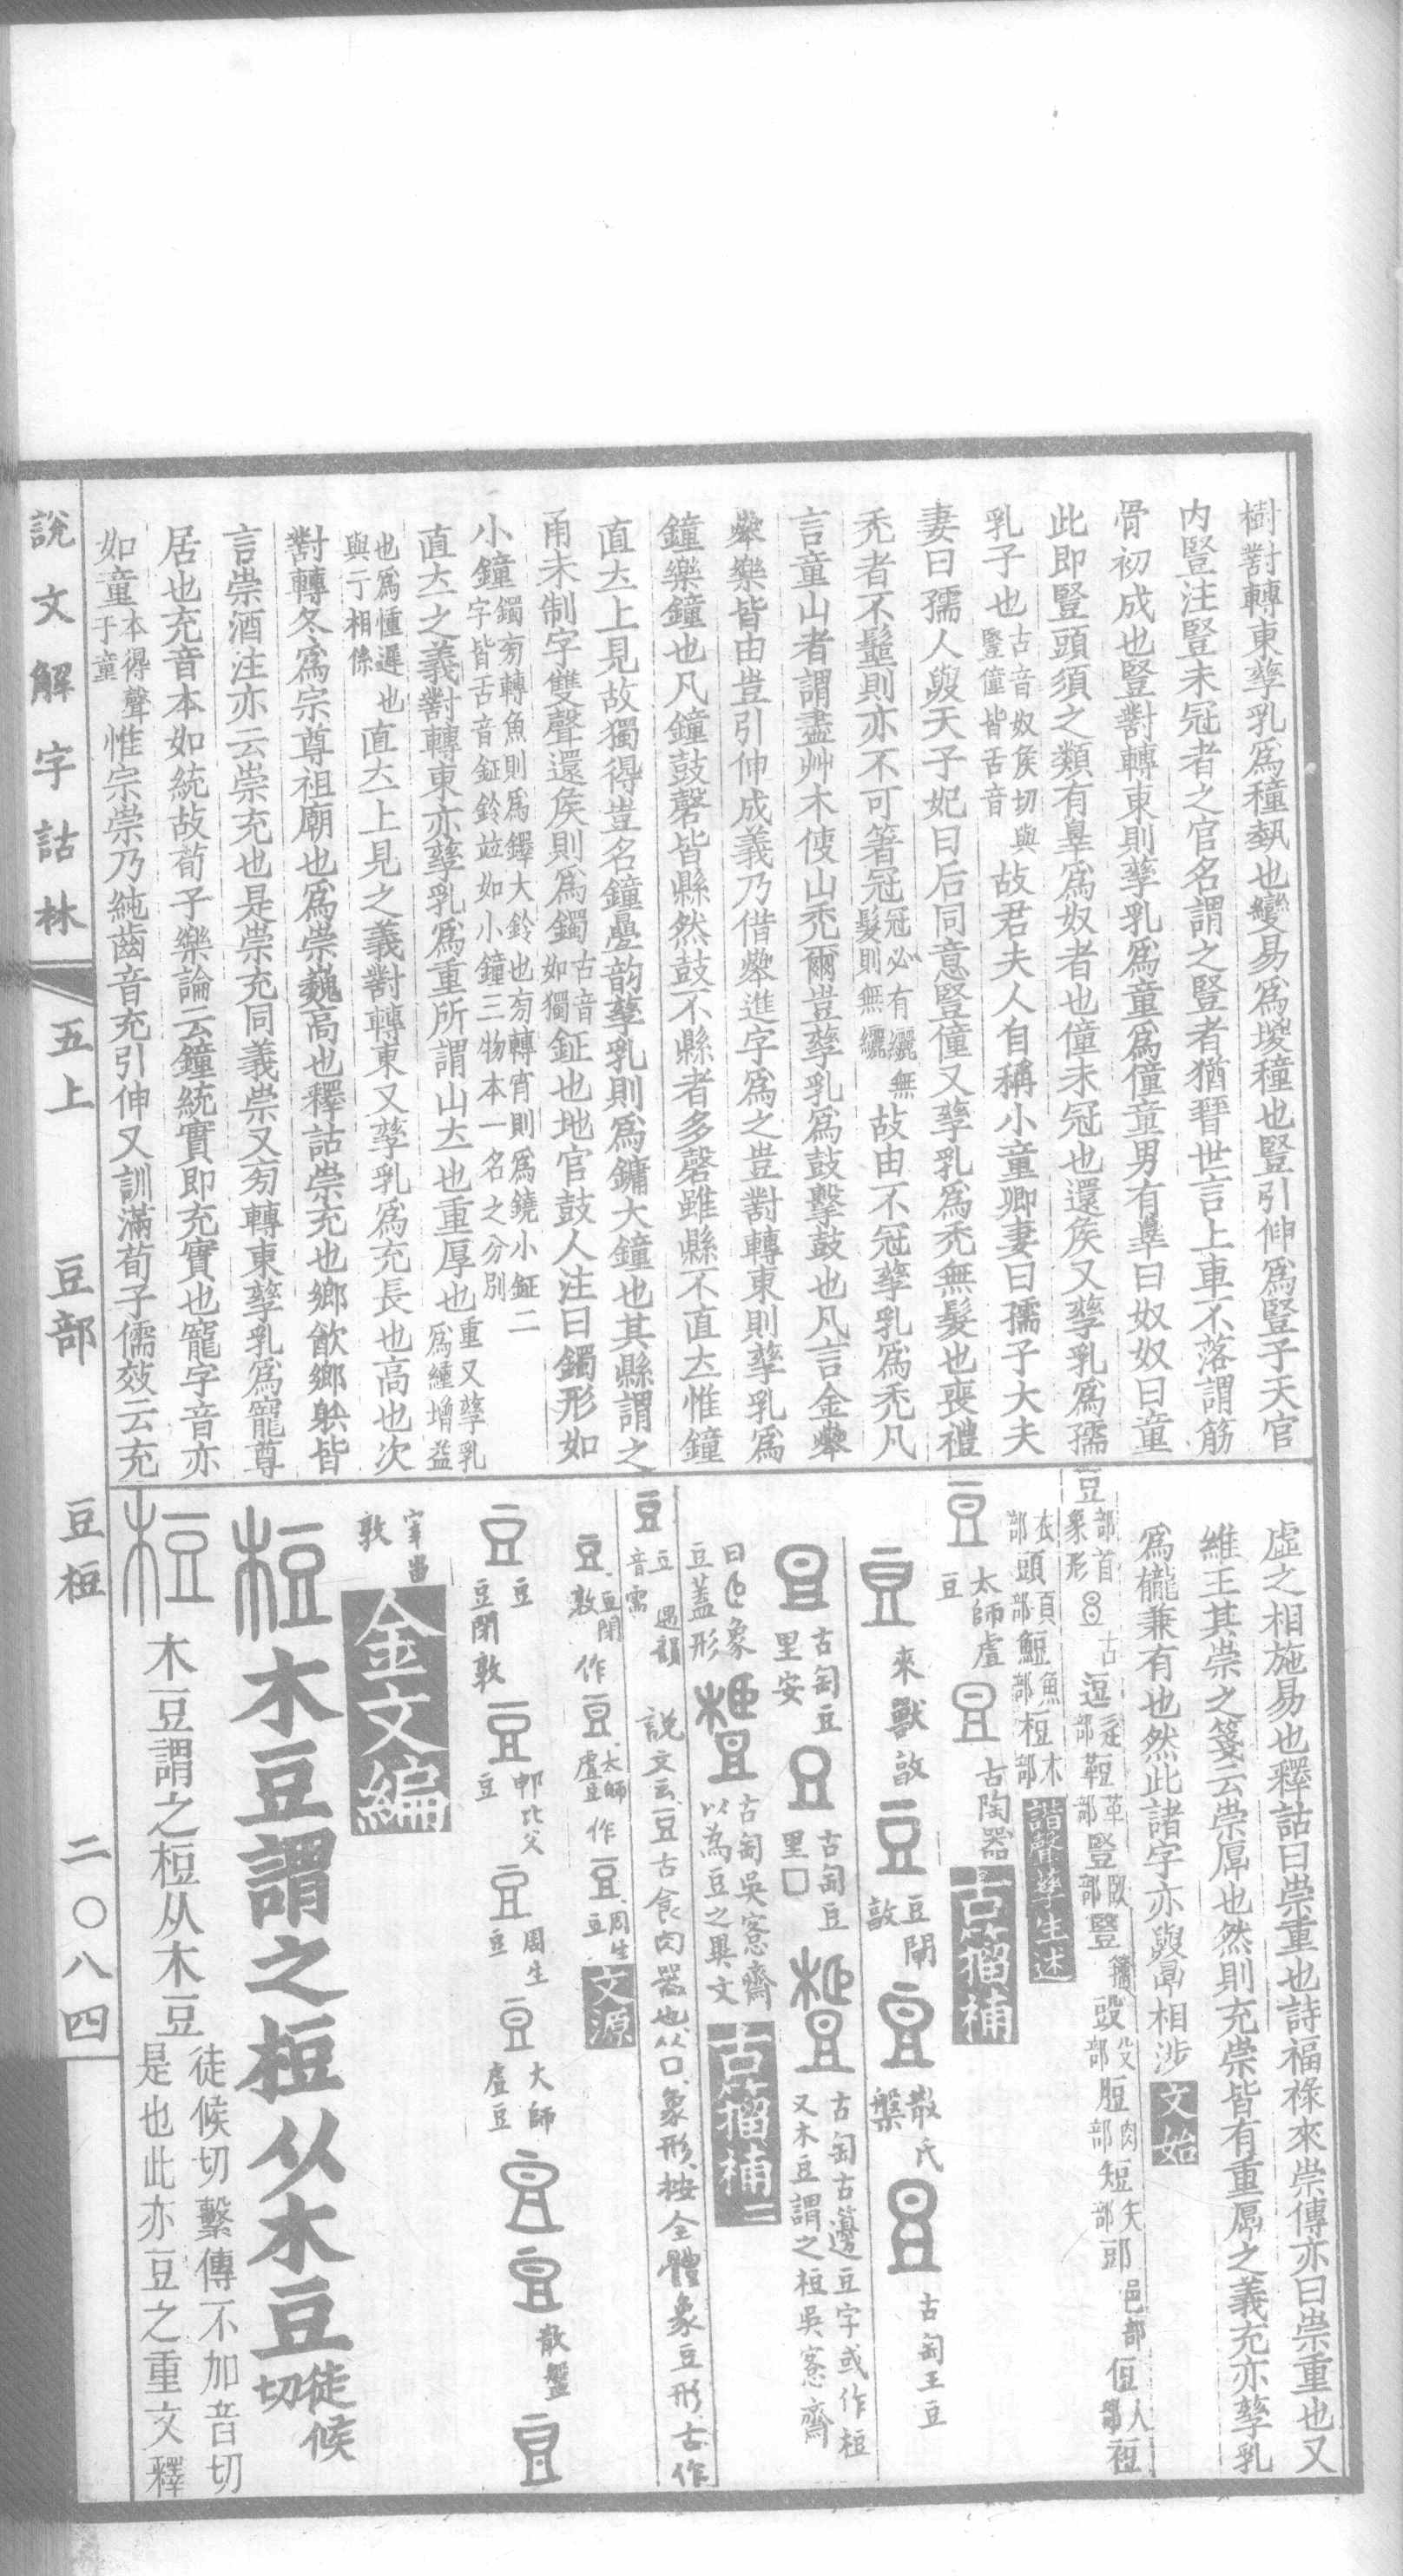 樹對轉東孳乳爲穜埶也孌易爲堫穜也豎引伸爲豎子天官
内豎注豎未冠者之官名謂之豎者猶晉世言上車不落謂筋
骨初成也豎對轉東則孳乳爲童爲僮童男有辠曰奴奴曰童
此即豎頭須之類有辠爲奴者也僮未冠也還矦又孳乳爲孺
乳子也古音奴矦切與豎僮皆舌音故君夫人自稱小童卿妻曰孺子大夫
妻曰孺人與天子妃曰后同意豎僮又孳乳爲禿無髮也喪禮
禿者不髽則亦不可箸冠冠必有纚無髮則無纚故由不冠孳乳爲禿凡
言童山者謂盡艸木使山禿爾豈孳乳爲鼓擊鼓也凡言金
樂皆由豈引伸成義乃借進字爲之豈對轉東則孳乳爲
鐘樂鐘也凡鐘鼓磬皆縣然鼓不縣者多磬雖縣不直㐀惟鐘
直上見故獨得豈名鐘疊韵孳乳則爲鏞大鐘也其縣謂之
甬未制字雙聲還矦則爲鐲古音如獨鉦也地官鼓人注曰鐲形如
小鐘鐲旁轉魚則爲鐸大鈴也旁轉宵則爲鐃小鉦二字皆舌音鉦鈴竝如小鐘三物本一名之分別
直之義對轉東亦孳乳爲重所謂山也重厚也重又孳乳爲緟增益
也爲㣫遲也與亍相係直上見之義對轉東又孳乳爲充長也高也次
對轉冬爲宗尊祖廟也爲崇巍高也釋詁崇充也鄉飮鄉躲皆
言崇酒注亦云崇充也是崇充同義崇又旁轉東孳乳爲寵尊
居也充音本如統故荀子樂論云鐘統實即充實也寵字音亦
如童本得聲于童惟宗崇乃純齒音充引伸又訓滿荀子儒效云充
虛之相施易也釋詁曰崇重也詩福祿來崇傳亦曰崇重也又
維王其崇之箋云崇厚也然則充崇皆有重厚之義充亦孳乳
爲龓兼有也然此諸字亦與相涉 文始
豆部首象形古逗辵部䩳革部豎臤部豎籀文㲉殳部脰肉部短矢部郖邑部侸人部裋
衣部頭頁部䱏魚部梪木部 諧聲孳生述
豆太師盧豆 古陶器 古籀補
豆來獸敦 豆閉敦 散氏盤 古匋王豆
古匋豆里安 古匋豆里□ 古匋古籩豆字或作梪又木豆謂之梪吳愙齋
曰象豆蓋形 古匋吳愙齋以為豆之異文 古籀補二
豆豆音需遇韻 說文云豆古食肉器也从口象形按全體象豆形古作
豆豆閉敦作豆太師盧豆作豆周生豆 文源
豆豆豆閉敦 豆郸比父豆 豆周生豆 豆大師虘豆 散盤
宰甾敦 金文編
梪木豆謂之梪从木豆徒候切
梪木豆謂之梪从木豆徒候切繫傳不加音切是也此亦豆之重文釋
說文解字詁林 五上 豆部 豆梪 二〇八四